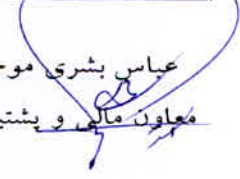 عباس بشری موح
معاون مالی و پشتی